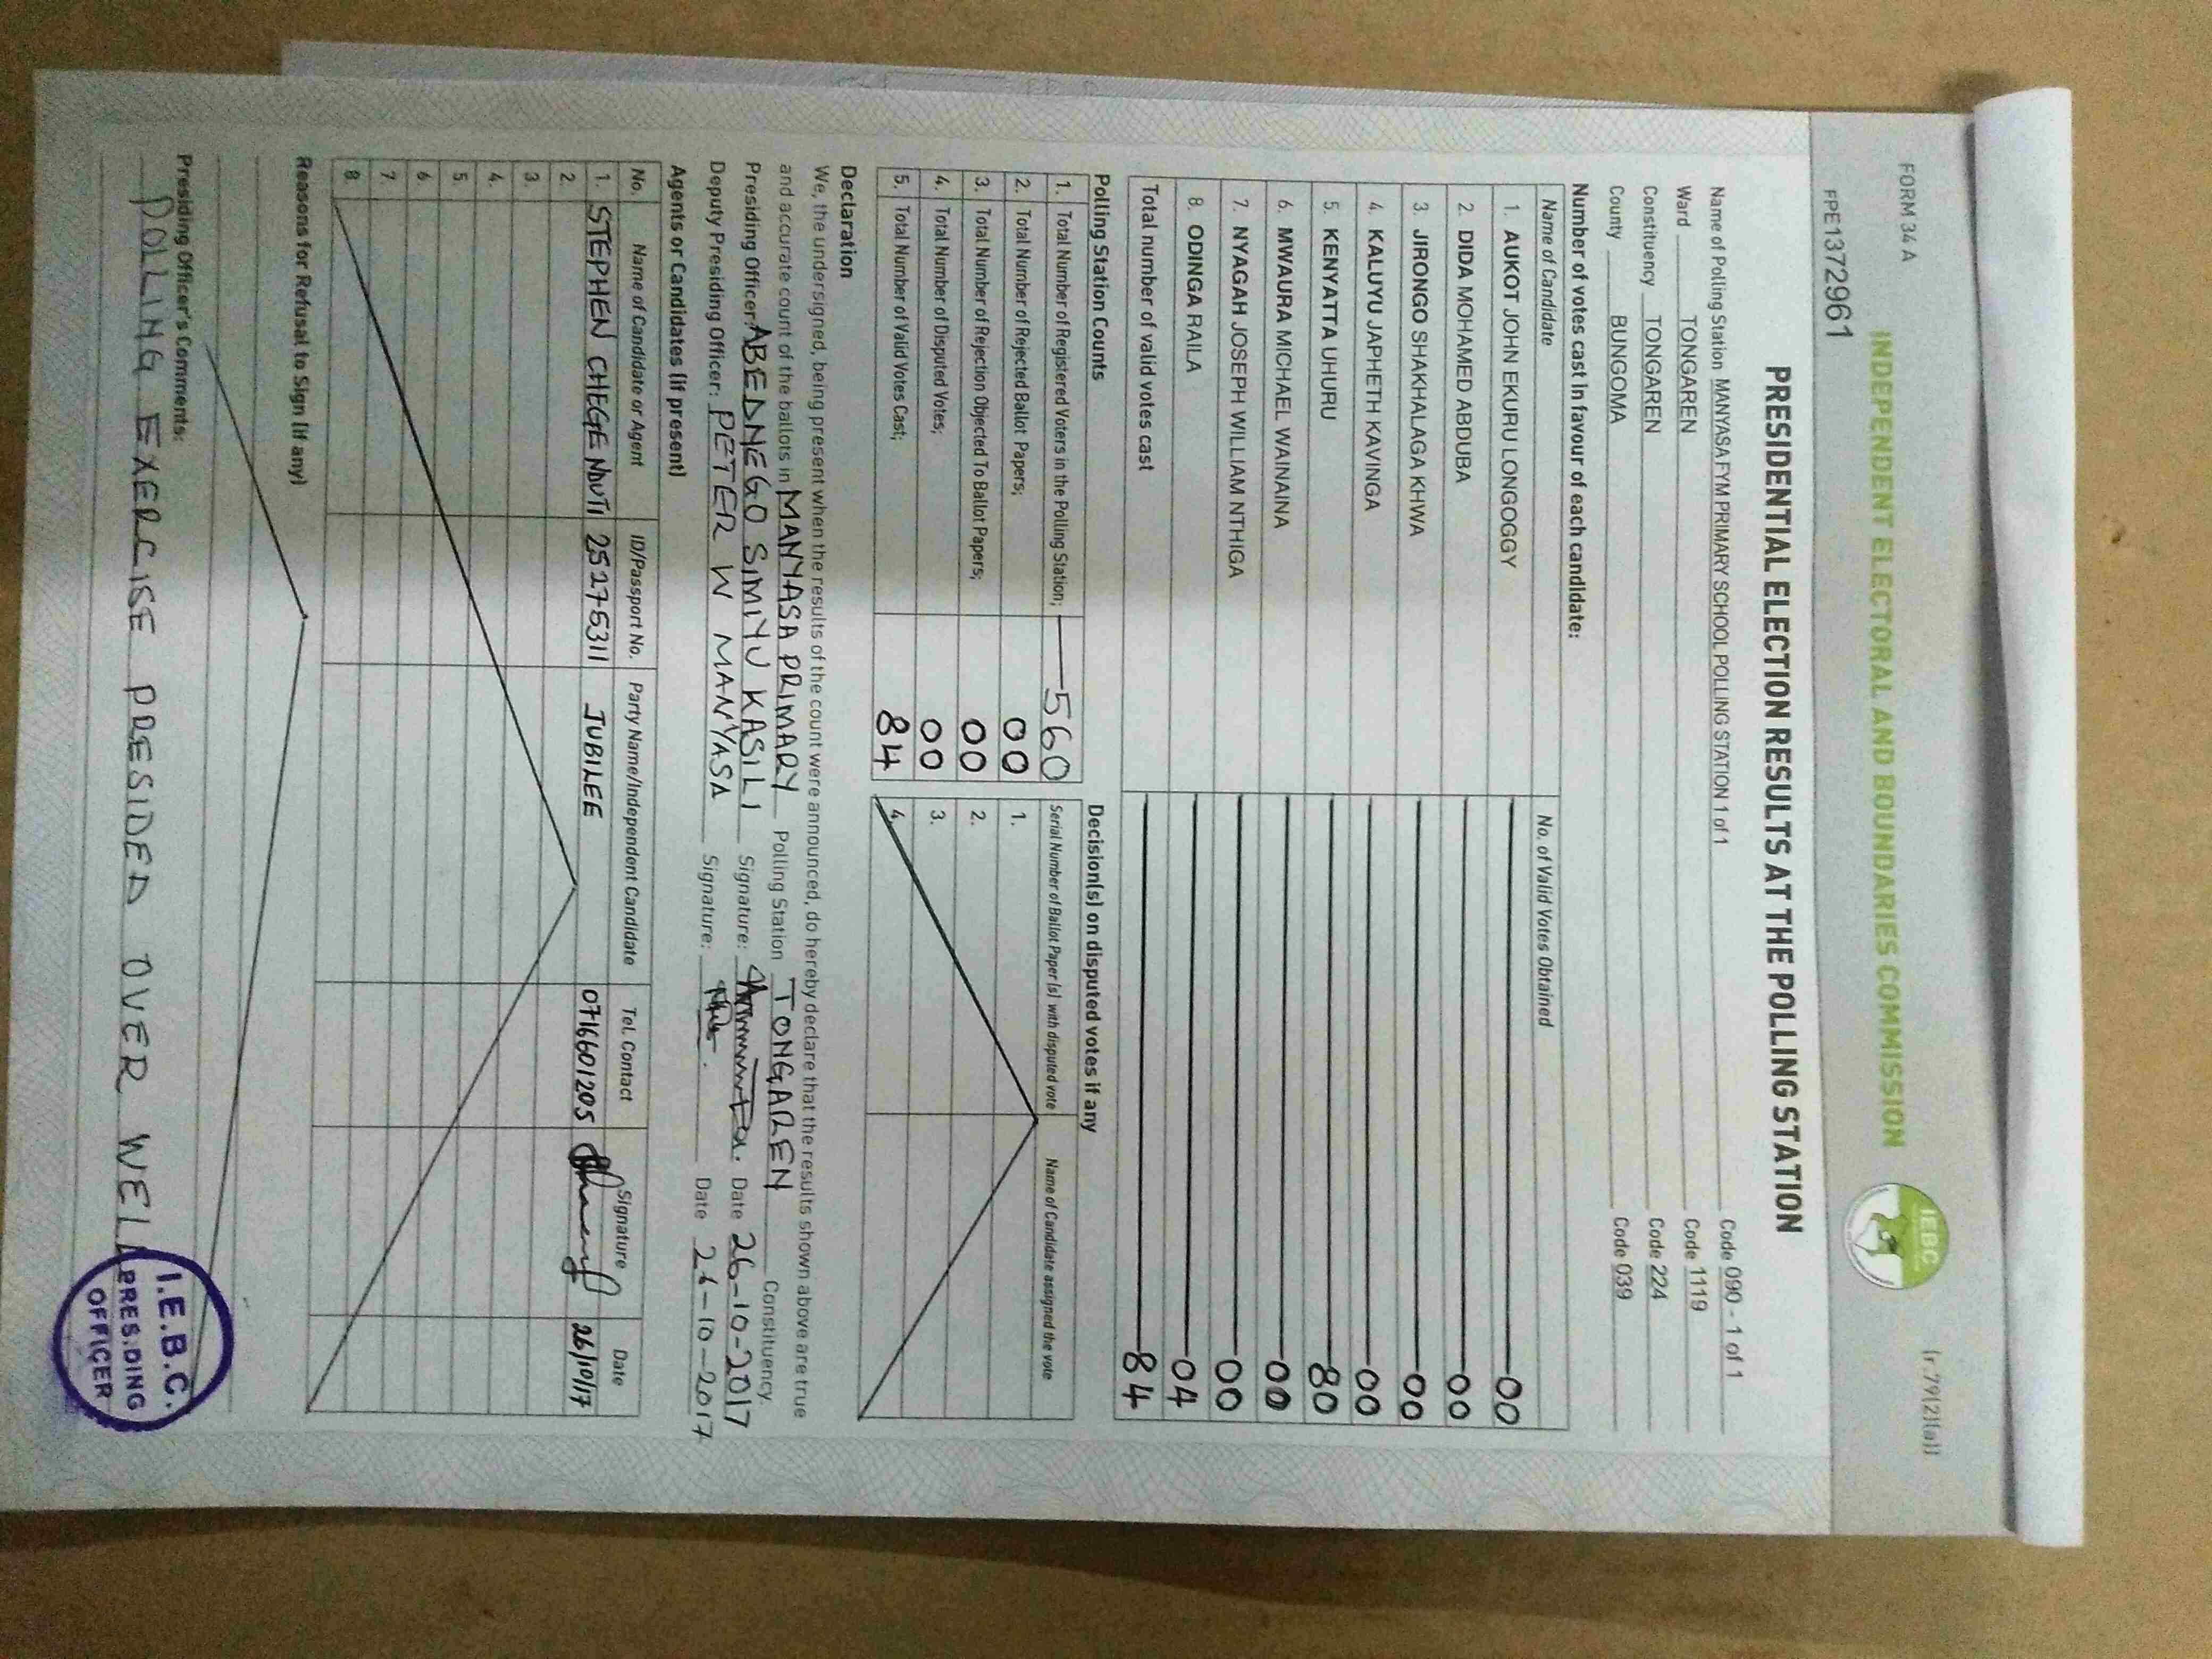 FORM 34 A
INDEPENDENT ELECTORAL AND BOUNDARIES COMMISSION
IEBC
(r.79(2)(a))
FPE1372961
PRESIDENTIAL ELECTION RESULTS AT THE POLLING STATION
Name of Polling Station MANYASA FYM PRIMARY SCHOOL POLLING STATION 1 of 1 Code 090 - 1 of 1
Ward TONGAREN Code 1119
Constituency TONGAREN Code 224
County BUNGOMA Code 039
Number of votes cast in favour of each candidate:
Name of Candidate No. of Valid Votes Obtained
1. AUKOT JOHN EKURU LONGOGGY 00
2. DIDA MOHAMED ABDUBA 00
3. JIRONGO SHAKHALAGA KHWA 00
4. KALUYU JAPHETH KAVINGA 00
5. KENYATTA UHURU 80
6. MWAURA MICHAEL WAINAINA 00
7. NYAGAH JOSEPH WILLIAM NTHIGA 00
8. ODINGA RAILA 04
Total number of valid votes cast 84
Polling Station Counts
1. Total Number of Registered Voters in the Polling Station; 560
2. Total Number of Rejected Ballot Papers; 00
3. Total Number of Rejection Objected To Ballot Papers; 00
4. Total Number of Disputed Votes; 00
5. Total Number of Valid Votes Cast; 84
Decision(s) on disputed votes if any
Serial Number of Ballot Paper (s) with disputed vote Name of Candidate assigned the vote
1.
2.
3.
4.
Declaration
We, the undersigned, being present when the results of the count were announced, do hereby declare that the results shown above are true
and accurate count of the ballots in MANYASA PRIMARY Polling Station TONGAREN Constituency.
Presiding Officer: ABEDNEGO SIMIYU KASILI Signature: Date 26-10-2017
Deputy Presiding Officer: PETER W MANYASA Signature: Date 26-10-2017
Agents or Candidates (if present)
No. Name of Candidate or Agent ID/Passport No. Party Name/Independent Candidate Tel. Contact Signature Date
1. STEPHEN CHEGE NDUTI 25275311 JUBILEE 0716601205 26/10/17
2.
3.
4.
5.
6.
7.
8.
Reasons for Refusal to Sign (if any)
Presiding Officer's Comments:
POLLING EXERCISE PRESIDED OVER WELL
I.E.B.C.
PRESIDING
OFFICER